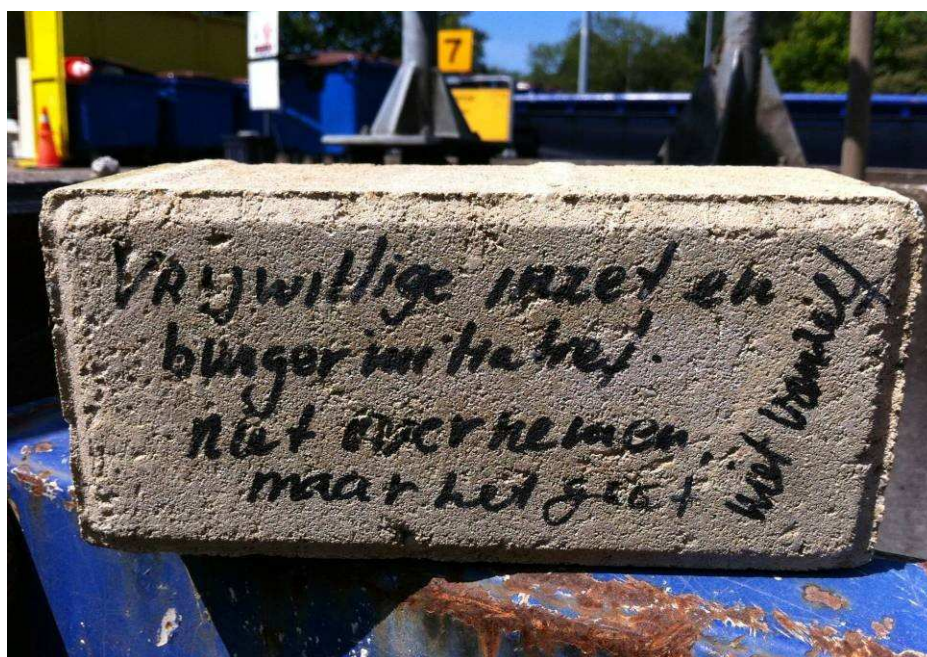 7
Vrijwillige inzet en
burgerinitiatief.
niet overnemen,
maar het gaat
niet vanzelf